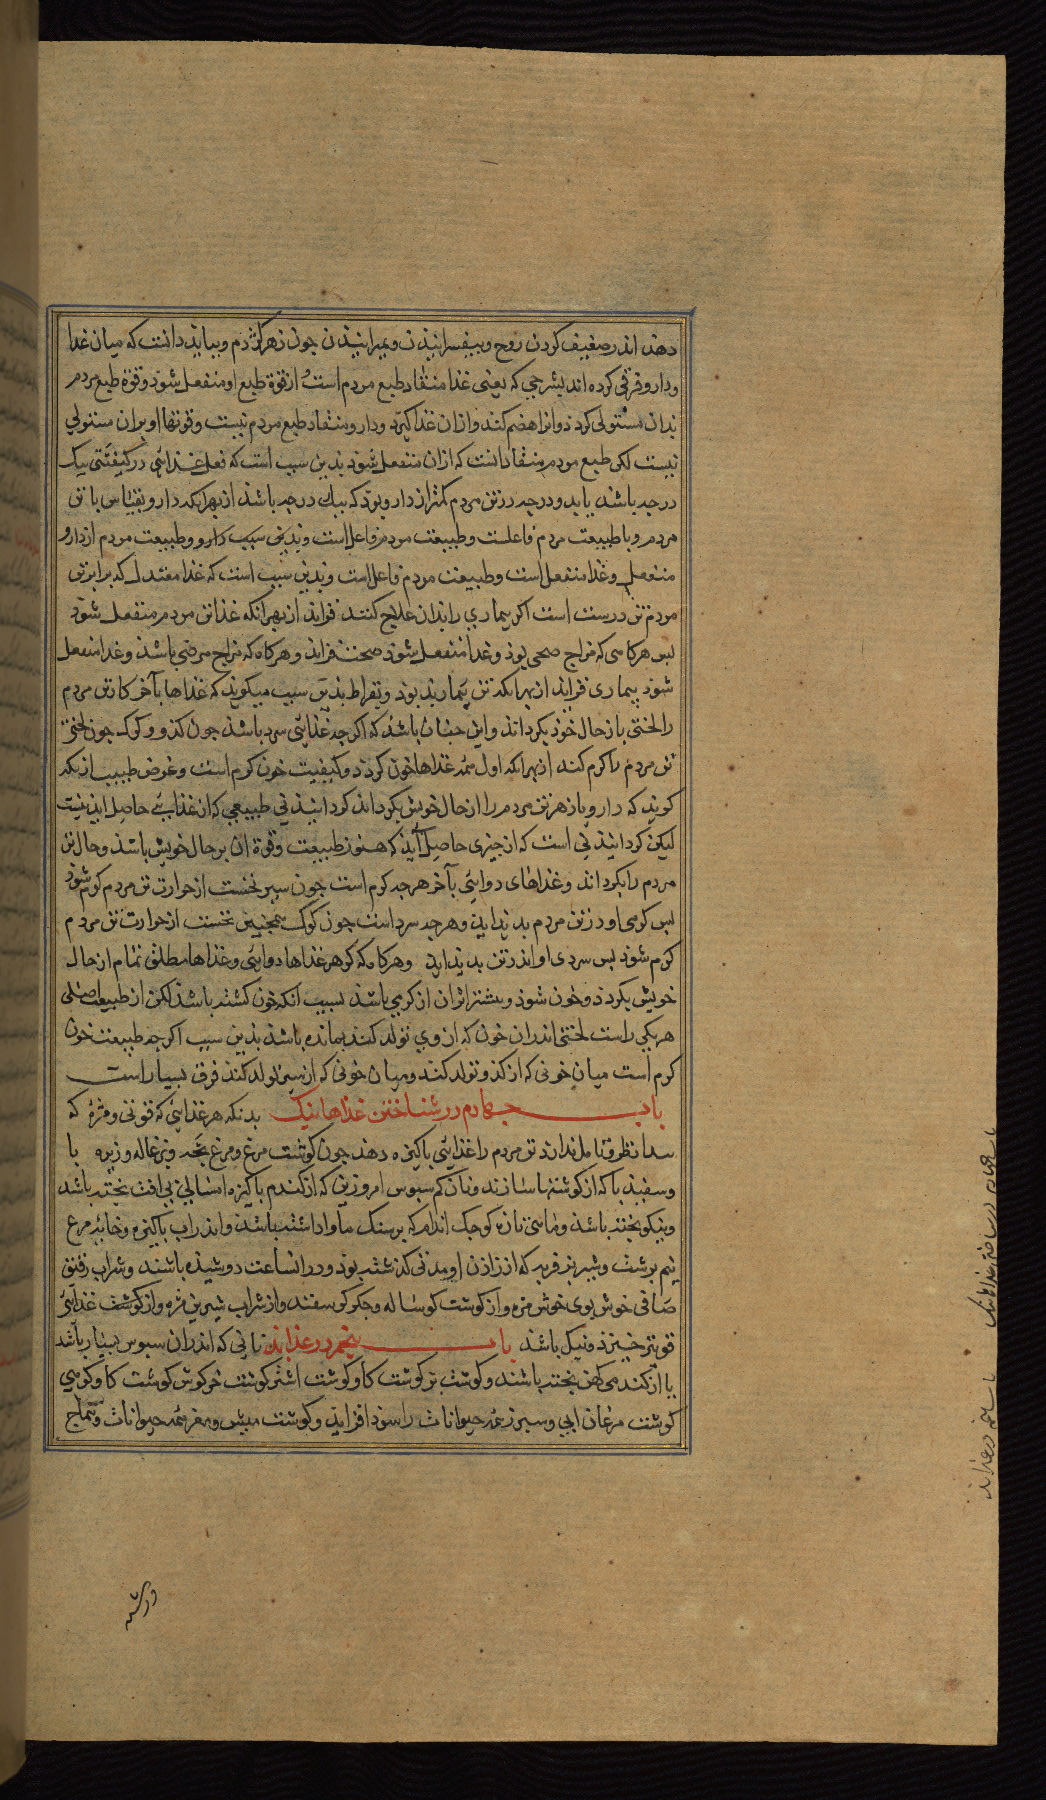 دهد اندر ضعیف کردن روح و بیفسرانیدن و بمیرانیدن چون زهر کژدم و بباید دانست که میان غذا
و دارو فرقی کرده اند بشرحی که یعنی غذا منقاد طبع مردم است از قوة طبع او منفعل شود و قوة طبع مردم
بدان مستولی کردد و انرا هضم کند و ازان غذا کیرد و دارو منقاد طبع مردم نیست و قوتها او بران مستولی
نیست لکن طبع مردم منقاد انست که ازان منفعل شود بدین سبب است که فعل غذائی در کیفیتی بیک
درجه باشد یا بدو درجه در تن مردم کمتر از دارو بود که بیک درجه باشد از بهر انکه دارو بقیاس با تن
مردم و با طبیعت مردم فاعلست و طبیعت مردم فاعل است و بدین سبب دارو و طبیعت مردم از دارو
منفعل و غذا منفعل است و طبیعت مردم فاعل است و بدین سبب است که غذا معتدل که برابر تن
مردم تن درست است اکر بیماری را بدان علاج کنند فزاید از بهر انکه غذا تن مردم منفعل شود
بس هرکاهی که مزاج صحی بود و غذا منفعل شود صحت فزاید و هرکاه که مزاج مرضی باشد و غذا منفعل
شود بیماری فزاید از بهر انکه تن بیمار بد بود و بقراط بدین سبب میکوید که غذاها بآخر کار تن مردم
را لختی باز حال خود بکرداند و این جنان باشد که اکرجه غذایی سرد باشد جون کدو و کوک جون لختی
تن مردم را کرم کند از بهر انکه اول همه غذاها خون کردد و کیفیت خون کرم است و غرض طبیب از بکه
کوید که دارو با زهر تن مردم را از حال خویش بکرداند کردانیدنی طبیعی که از غذایی حاصل اید نیست
لیکن کردانیدنی است که از جیزی حاصل آید که هنوز طبیعت و قوة ان بر حال خویش باشد و حال تن
مردم را بکرداند و غذاهای دوایی بآخر هرجه کرم است جون سیر نخست از حرارت تن مردم کرم شود
بس کرمی او در تن مردم بدید اید و هرجه سرد است جون کوک همجنین نخست از حرارت تن مردم
کرم شود بس سردی او اندر تن بدید اید و هرکاه که کوهر غذاها دوایی و غذاها مطلق تمام از حال
خویش بکردد و خون شود و بیشتر اثر ان از کرمی باشد بسبب انکه خون کشته باشد لکن از طبیعت اصلی
هر یکی راست لختی اندران خون که از وی تولد کند بمانده باشد بدین سبب اکرجه طبیعت خون
کرم است میان خونی که از کدو تولد کند و میان خونی که از سیر تولد کند فرق بسیار است
باب جهارم در شناختن غذاها نیک بدنکه هر غذایی که قوتی و مزۀ که
بدا نظر و تامل تن مردم را غذایی باکیزه دهد جون کوشت مرغ و مرغ بجه و بزغاله و زیره با
و سفیدبا که از کوشتها سازند و نان کم سبوس امروزین که از کندم باکیزه امسالی بی افت بخته باشد
و نیکو بخته باشد و ماهی تازه کوجک اندام که بر سنک ماوا داشته باشد و اندر آب باکیزه و خایه مرغ
نیم برشت و شیر بز فربه که از زادن او مدتی کذشته بود و در انساعت دوشیده باشند و شراب رقیق
صافی خوش بوی خوش مزه و از کوشت کوساله و جکر کوسفند و از شراب شیرین مزه و از کوشت غذایی
قویتر خیزد و نیک باشد باب پنجم در غذا بد نانی که اندران سبوس بسیار باشد
یا از کندم کهن بخته باشند و کوشت بز کوشت کاو کوشت اشتر کوشت خرکوش کوشت کاو کوهی
کوشت مرغان ابی و سبرز همه حیوانات را سودا فزاید و کوشت میش و مغز همه حیوانات و تتماج
باب جهارم در شناختن غذاها نیک
باب پنجم در غذا بد